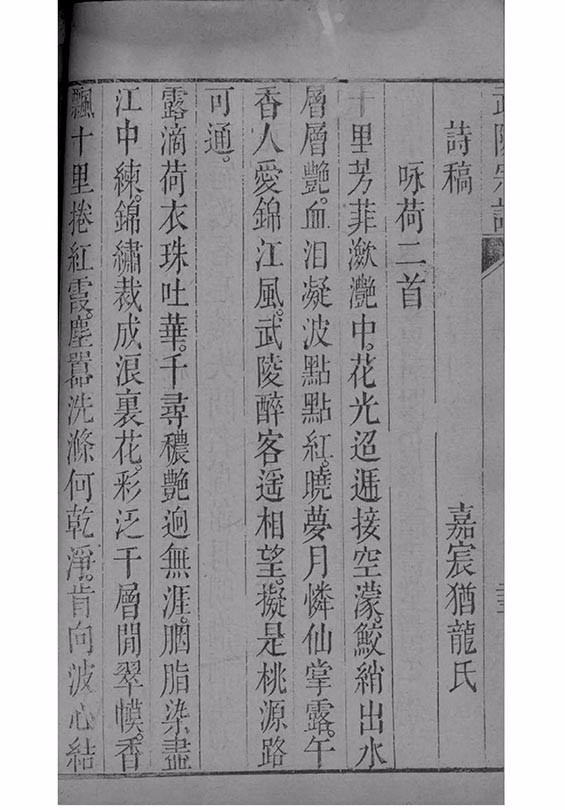 詩稿 嘉宸猶龍氏
咏荷二首
十里芳菲瀲灧中。花光迢遞接空濛。鮫綃出水
層層艷。血泪凝波點點紅。曉夢月憐仙掌露。午
香人愛錦江風。武陵醉客遥相望。擬是桃源路
可通。
露滴荷衣珠吐華。千尋穠艷逈無涯。胭脂染盡
江中練。錦繡裁成浪裏花。彩泛千層閒翠幙。香
飄十里捲紅霞。塵囂洗滌何乾淨。肯向波心結